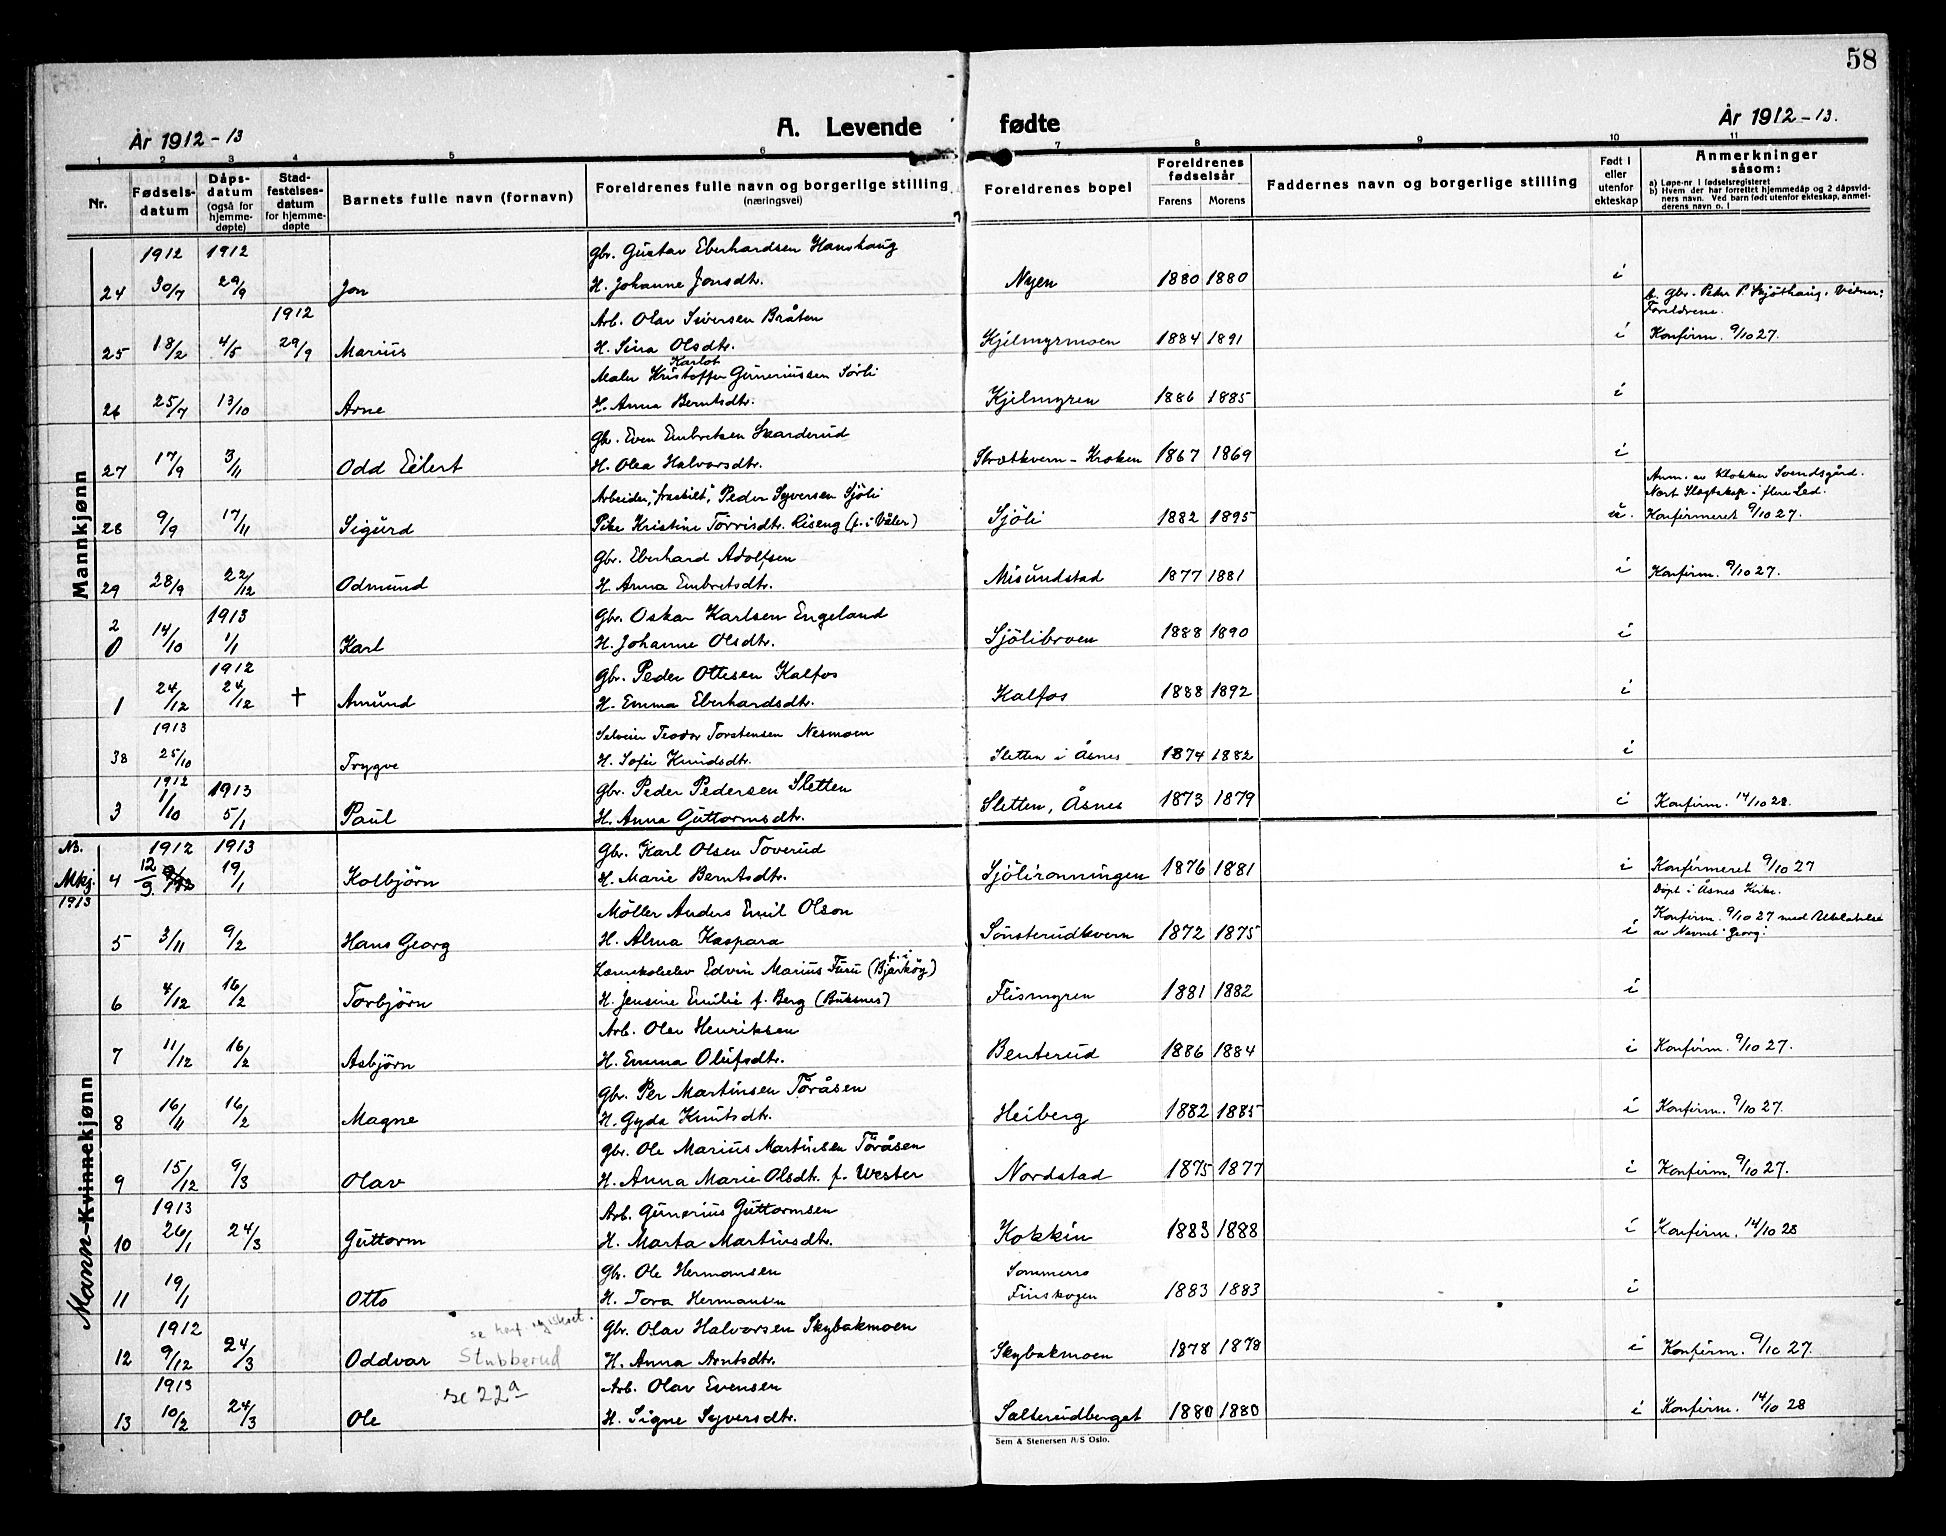 58
År 1912-13
A. Levende fødte
År 1912-13.
1 2 3 4 5 6 7 8 9 10 11
Nr.
Fødsels-
datum
Dåps-
datum
(også for
hjemme-
døpte)
Stad-
festelses-
datum
for hjemme-
døpte
Barnets fulle navn (fornavn)
Foreldrenes fulle navn og borgerlige stilling
(næringsvei)
Foreldrenes bopel
Foreldrenes
fødselsår
Farens Morens
Faddernes navn og borgerlige stilling
Født i
eller
utenfor
ekteskap
Anmerkninger
såsom:
a) Løpe-nr i fødselsregisteret
b) Hvem der har forrettet hjemmedåp og 2 dåpsvid-
ners navn. Ved barn født utenfor ekteskap, anmel-
derens navn o. l
Mannkjønn
1912 1912 Gbr. Gustav Eberhardsen Hanshaug
24 30/7 29/9 Jon H. Johanne Jonsdtr. Nyen 1880 1880 i
b. Gbr. Peder P. Skjöthaug. Vidner:
Foreldrene.
1912 Arb. Olav Siversen Bråten
25 18/2 4/5 29/9 Marius H. Sina Olsdtr. Kjelmyrmoen 1884 1891 i Konfirm. 9/10 27.
Karlot
Maler Kristoffer Guneriussen Sörli
26 25/7 13/10 Arne H. Anna Berntsdtr. Kjelmyren 1886 1885 i
Gbr. Even Embretsen Skarderud
27 17/9 3/11 Odd Eilert H. Olea Halvorsdtr. Strætkvern - Kroken 1867 1869 i
Anm. av Klokker Svendsgård.
Nært Slegtskap i flere Led.
Arbeider, "fraskilt", Peder Syversen Sjöli
28 9/9 17/11 Sigurd Pike Kristine Torrisdtr. Riseng (f. i Våler) Sjöli 1882 1895 u. Konfirmeret 9/10 27.
Gbr. Eberhard Adolfsen
29 28/9 22/12 Odmund H. Anna Embretsdtr. Misundstad 1877 1881 i Konfirm. 9/10 27.
2 1913 Gbr. Oskar Karlsen Engeland
0 14/10 1/1 Karl H. Johanne Olsdtr. Sjölibroen 1888 1890 i
1912 Gbr. Peder Ottesen Kalfos
1 24/12 24/12 † Amund H. Emma Eberhardsdtr. Kalfos 1888 1892 i
1913 Teodor Torstensen Nesmoen
38 25/10 Trygve H. Sofie Knudsdtr. Sletten i Åsnes 1874 1882 i
1912 1913 Gbr. Peder Pedersen Sletten
3 1/10 5/1 Paul H. Anna Guttormsdtr. Sletten, Åsnes 1873 1879 i Konfirm. 14/10 28.
NB. 1912 1913 Gbr. Karl Olsen Toverud
Mkj. 4 12/9. 19/1 Kolbjörn H. Marie Berntsdtr. Sjölironningen 1876 1881 i Konfirmeret 9/10 27
1913
Döpt i Åsnes Kirke.
Möller Anders Emil Olson
Konfirm. 9/10 27 med Utelatelse
5 3/11 9/2 Hans Georg H. Alma Kaspara Sönsterudkvern 1872 1875 i av Navnet "Georg".
Edvin Marius Furu (f. i Bjarköy)
6 4/12 16/2 Torbjörn H. Jensine Emilie f. Berg (Buksnes) Flismyren 1881 1882 i
Arb. Olav Henriksen
7 11/12 16/2 Asbjörn H. Emma Olufsdtr. Benterud 1886 1884 i Konfirm. 9/10 27.
Mann-Kvinnekjønn
Gbr. Per Martinsen Toråsen
8 16/11 16/2 Magne H. Gyda Knutsdtr. Heiberg 1882 1885 i Konfirm. 9/10 27.
Gbr. Ole Marius Martinsen Toråsen
9 15/12 9/3 Olav H. Anna Marie Olsdtr. f. Wester Nordstad 1875 1877 i Konfirm. 9/10 27.
1913 Arb. Gunerius Guttormsen
10 26/1 24/3 Guttorm H. Marta Martinsdtr. Kokkin 1883 1888 i Konfirm. 14/10 28
Gbr. Ole Hermansen
11 19/1 Otto H. Tora Hermansen Sommerro
Finskogen 1883 1883 i
1912 se konf. registeret. Gbr. Olav Halvorsen Skybakmoen
12 9/12 24/3 Oddvar Stubberud H. Anna Arntsdtr. Skybakmoen 1878 1878 i Konfirm. 9/10 27.
1913 se 22a Arb. Olav Evensen
13 10/2 24/3 Ole H. Signe Syversdtr. Salterudberget 1880 1880 i Konfirm. 14/10 28
Sem & Stenersen A/S Oslo.